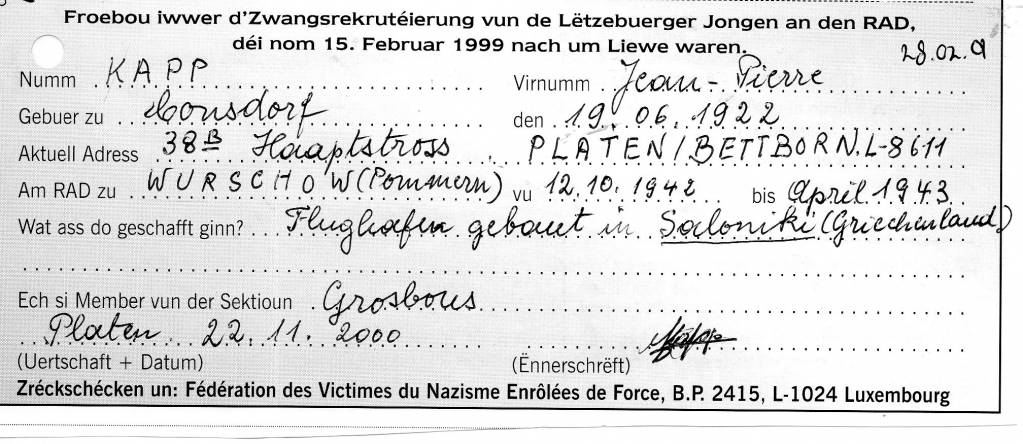 Froebou iwwer d'Zwangsrekrutéierung vun de Lëtzebuerger Jongen an den RAD,
déi nom 15. Februar 1999 nach um Liewe waren.
28.02.
Numm KAPP Virnumm Jean-Pierre
Gebuer zu Consdorf den 19.06.1922
Aktuell Adress 38B Haaptstross PLATEN/BETTBORN.L-8611
Am RAD zu WURSCHOW (Pommern) vu 12.10.1942 bis April 1943
Wat ass do geschafft ginn? Flughafen gebaut in Saloniki (Griechenland)
Ech si Member vun der Sektioun Grosbous
Platen 22.11.2000
(Uertschaft + Datum) (Ënnerschrëft)
Zréckschécken un: Fédération des Victimes du Nazisme Enrôlées de Force, B.P. 2415, L-1024 Luxembourg